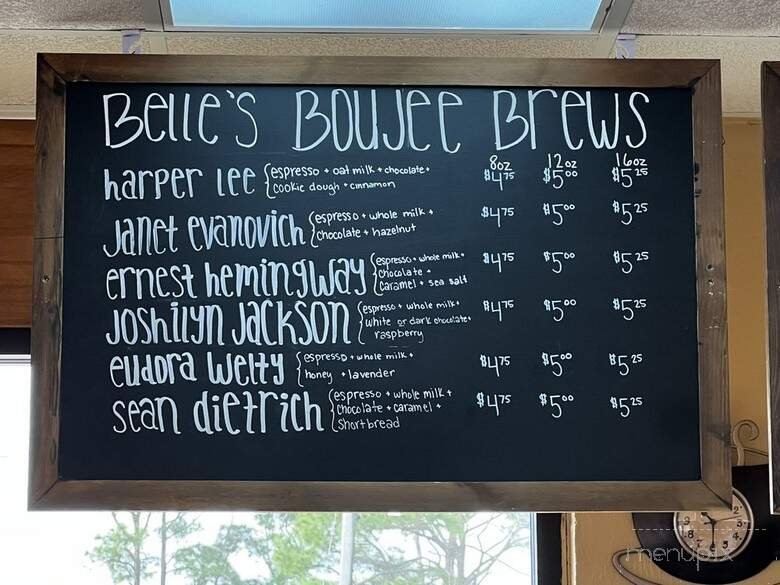 Belle's Boujee Brews
8oz 12oz 16oz
harper lee {espresso + oat milk + chocolate + $4.75 $5.00 $5.25
cookie dough + cinnamon
Janet evanovich {espresso + whole milk + $4.75 $5.00 $5.25
chocolate + hazelnut
ernest hemingway {espresso + whole milk + $4.75 $5.00 $5.25
chocolate +
caramel + sea salt
Joshilyn Jackson {espresso + whole milk + $4.75 $5.00 $5.25
white or dark chocolate +
raspberry
eudora welty {espresso + whole milk + $4.75 $5.00 $5.25
honey + lavender
sean dietrich {espresso + whole milk + $4.75 $5.00 $5.25
chocolate + caramel +
shortbread
menupix